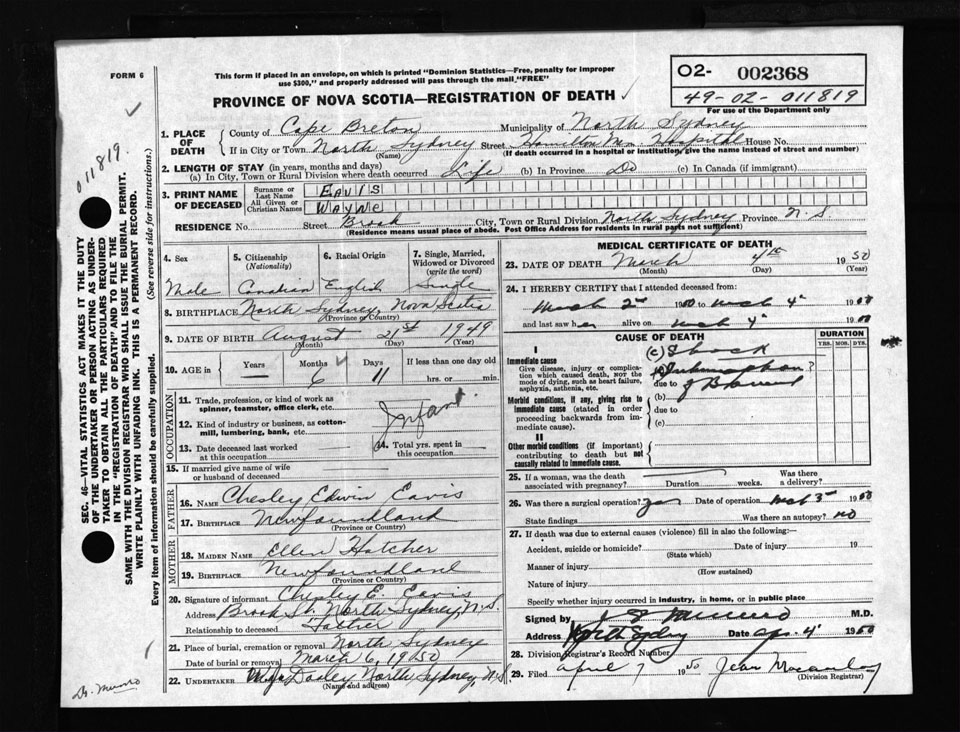 FORM 6
This form if placed in an envelope, on which is printed "Dominion Statistics—Free, penalty for improper
use $300," and properly addressed will pass through the mail "FREE"
PROVINCE OF NOVA SCOTIA—REGISTRATION OF DEATH
O2- 002368
49-02-011819
For use of the Department only
011819.
SEC. 46—VITAL STATISTICS ACT MAKES IT THE DUTY
OF THE UNDERTAKER OR PERSON ACTING AS UNDER-
TAKER TO OBTAIN ALL THE PARTICULARS REQUIRED
IN THE "REGISTRATION OF DEATH" AND TO FILE THE
SAME WITH THE DIVISION REGISTRAR WHO SHALL ISSUE THE BURIAL PERMIT.
WRITE PLAINLY WITH UNFADING INK. THIS IS A PERMANENT RECORD.
Every item of information should be carefully supplied. (See reverse side for instructions.)
1. PLACE OF DEATH County of Cape Breton Municipality of North Sydney
If in City or Town North Sydney Street Hamilton Hospital House No.
(Name) (If death occurred in a hospital or institution, give the name instead of street and number)
2. LENGTH OF STAY (in years, months and days)
(a) In City, Town or Rural Division where death occurred Life (b) In Province Do (c) In Canada (if immigrant)
3. PRINT NAME OF DECEASED Surname or Last Name EAVIS
All Given or Christian Names WAYNE
RESIDENCE No. Street Brook City, Town or Rural Division North Sydney Province N.S
(Residence means usual place of abode. Post Office Address for residents in rural parts not sufficient)
4. Sex 5. Citizenship (Nationality) 6. Racial Origin 7. Single, Married, Widowed or Divorced (write the word)
Male Canadian English Single
8. BIRTHPLACE North Sydney, Nova Scotia
(Province or Country)
9. DATE OF BIRTH August 21st 1949
(Month) (Day) (Year)
10. AGE in Years Months 6 Days 11 If less than one day old hrs. or min.
OCCUPATION
11. Trade, profession, or kind of work as
spinner, teamster, office clerk, etc.
Infant
12. Kind of industry or business, as cotton-
mill, lumbering, bank, etc.
13. Date deceased last worked at this occupation
14. Total yrs. spent in this occupation
15. If married give name of wife
or husband of deceased
FATHER
16. NAME Chesley Edwin Eavis
17. BIRTHPLACE Newfoundland
(Province or Country)
MOTHER
18. MAIDEN NAME Ellen Hatcher
19. BIRTHPLACE Newfoundland
(Province or Country)
20. Signature of informant Chesley E. Eavis
Address Brook St. North Sydney, N.S.
Relationship to deceased Father
21. Place of burial, cremation or removal North Sydney
Date of burial or removal March 6, 1950
22. UNDERTAKER Dooley North Sydney, N.S
(Name and address)
MEDICAL CERTIFICATE OF DEATH
23. DATE OF DEATH March 4th 1950
(Month) (Day) (Year)
24. I HEREBY CERTIFY that I attended deceased from:
March 2nd 1950 to March 4 1950
and last saw her alive on March 4 1950
CAUSE OF DEATH DURATION
YRS. MOS. DYS.
I
Immediate cause (c) Shock
Give disease, injury or complica-
tion which caused death, nor the
mode of dying, such as heart failure,
asphyxia, asthenia, etc.
due to
Morbid conditions, if any, giving rise to
immediate cause (stated in order
proceeding backwards from im-
mediate cause).
(b)
due to
(c)
II
Other morbid conditions (if important)
contributing to death but not
causally related to immediate cause.
25. If a woman, was the death
associated with pregnancy? Duration weeks. Was there a delivery?
26. Was there a surgical operation? Yes Date of operation March 3rd 1950
State findings Was there an autopsy? No
27. If death was due to external causes (violence) fill in also the following:—
Accident, suicide or homicide? Date of injury 19
(State which)
Manner of injury
(How sustained)
Nature of injury
Specify whether injury occurred in industry, in home, or in public place
Signed by Munro M.D.
Address North Sydney Date Apr. 4 1950
28. Division Registrar's Record Number
29. Filed April 7 1950 Jean Macaulay
(Division Registrar)
Dr. Munro